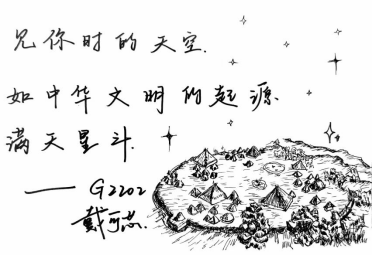 见你时的天空.
如中华文明的起源.
满天星斗.
—— G2202
戴可